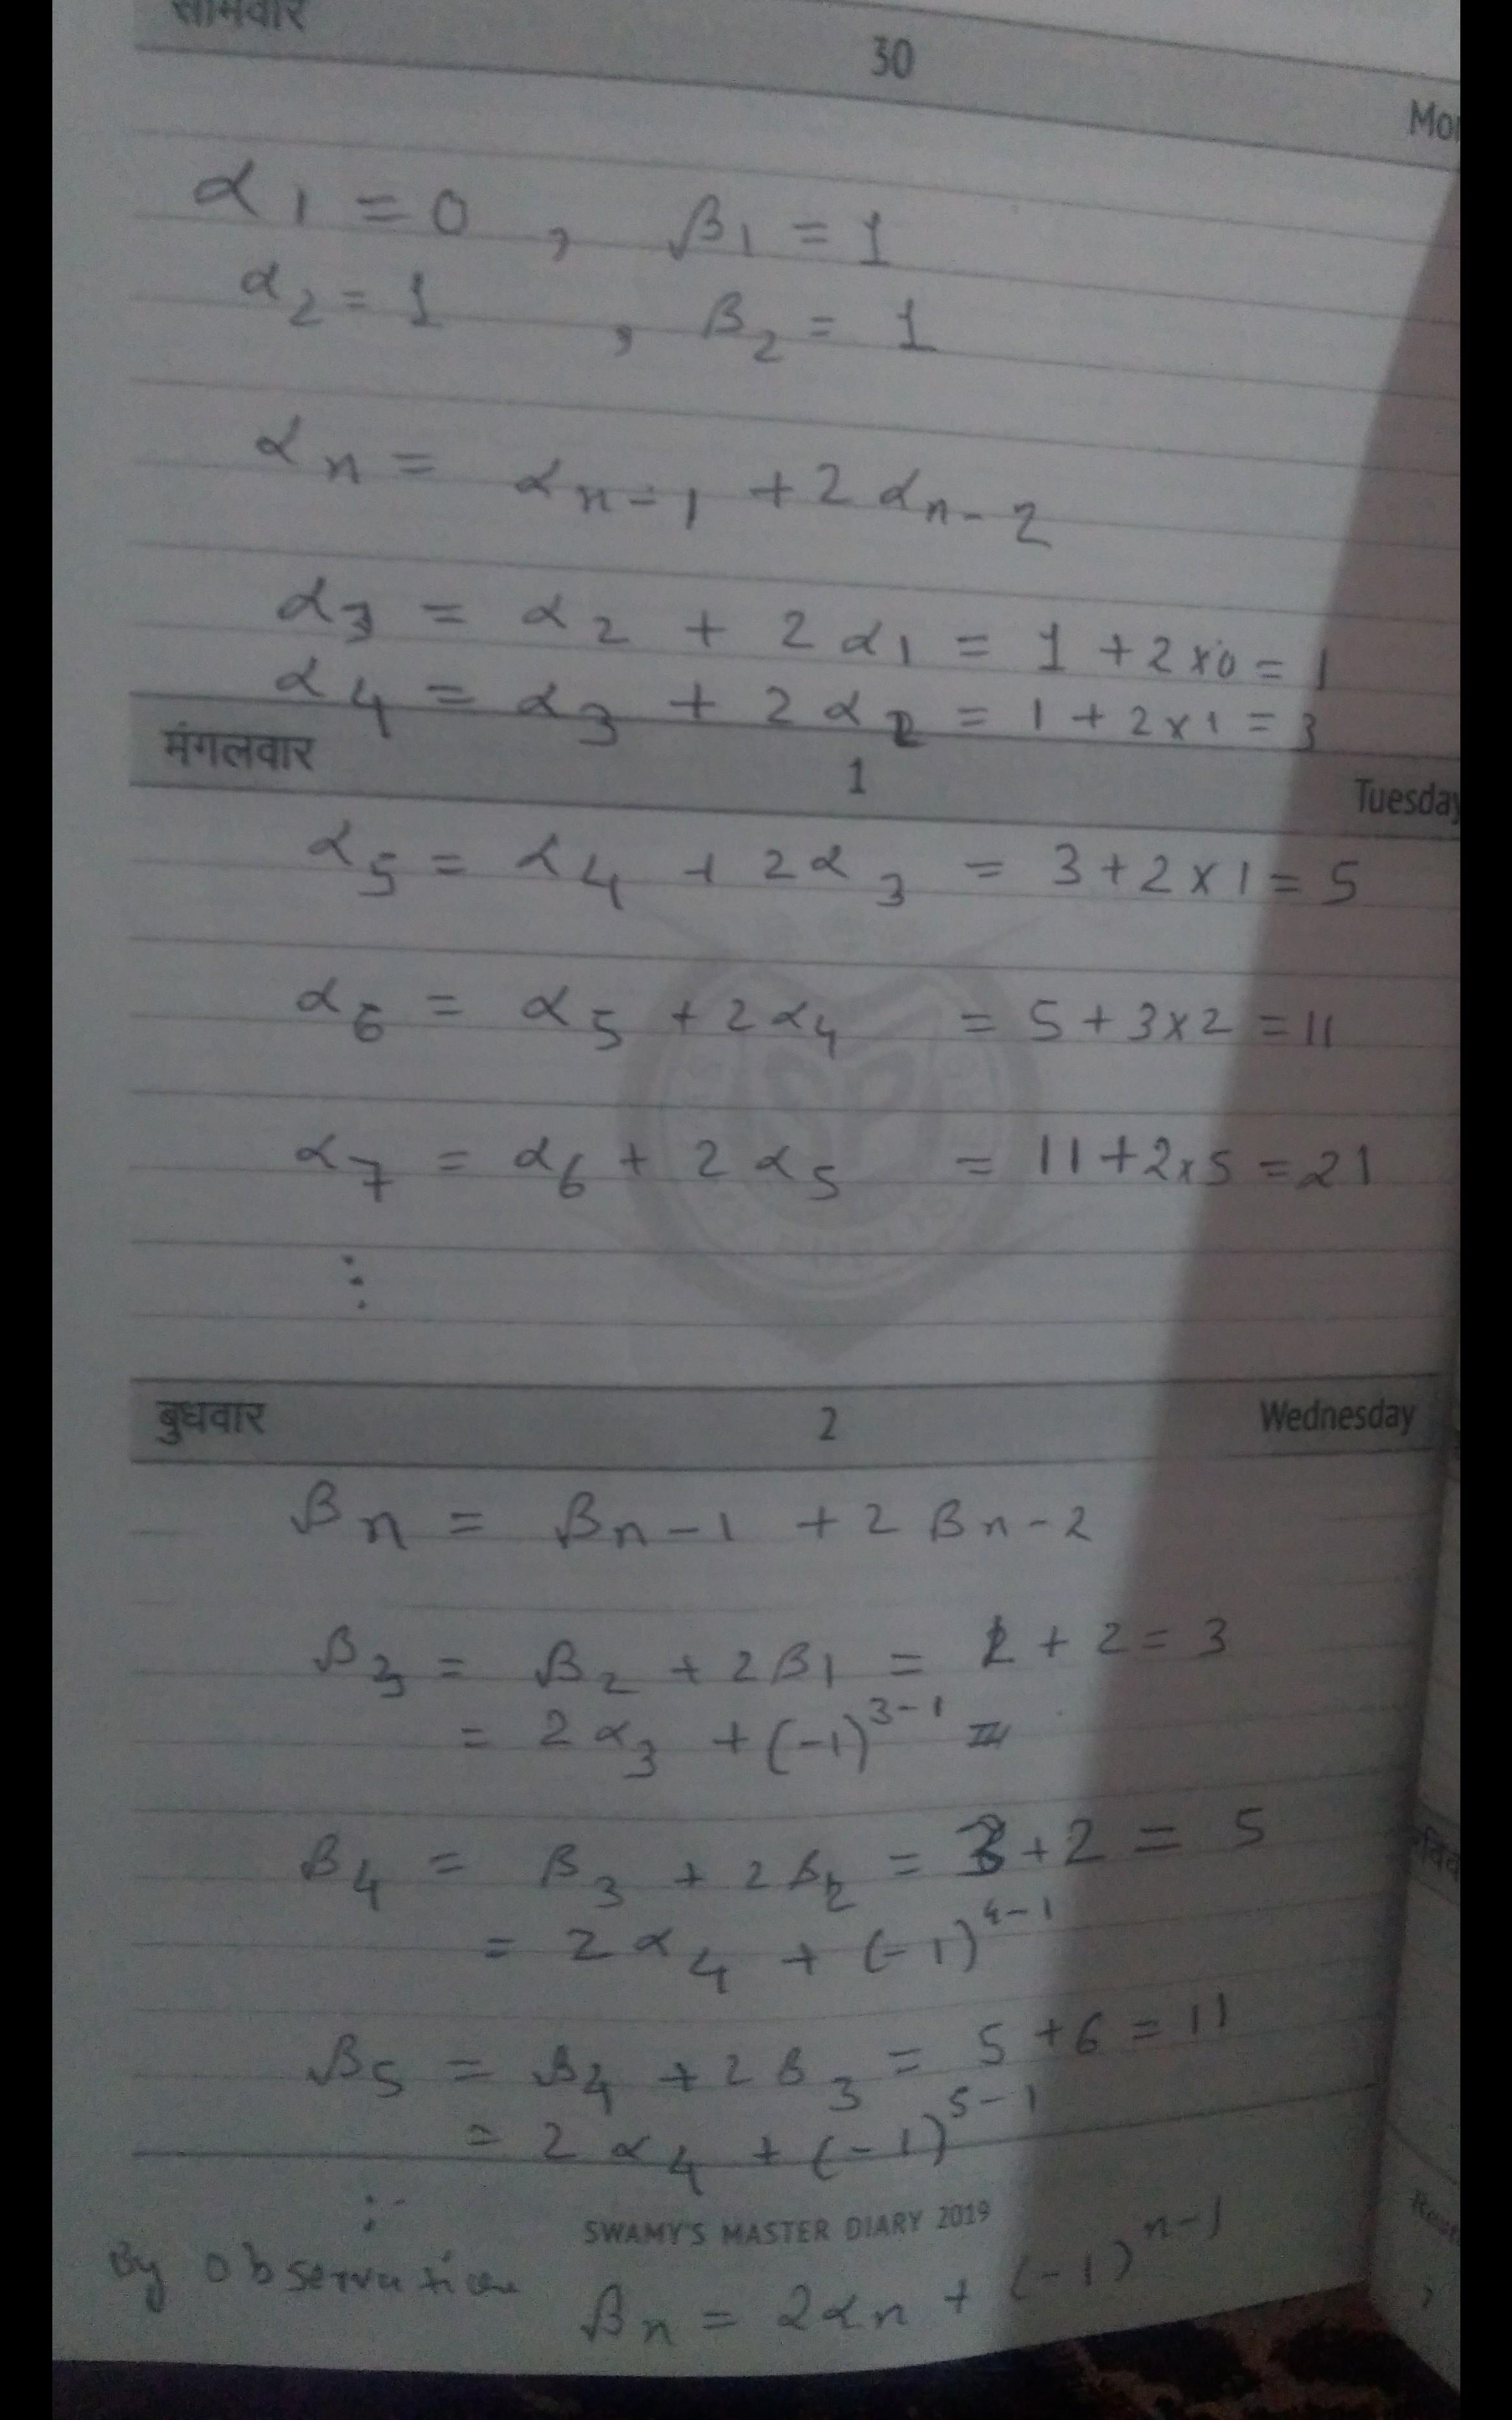 सोमवार 30 Mo
α1 = 0 , β1 = 1
α2 = 1 , β2 = 1
αn = αn-1 + 2 αn-2
α3 = α2 + 2 α1 = 1 + 2 x 0 = 1
α4 = α3 + 2 α2 = 1 + 2 x 1 = 3
मंगलवार 1 Tuesday
α5 = α4 + 2 α3 = 3 + 2 x 1 = 5
α6 = α5 + 2 α4 = 5 + 3 x 2 = 11
α7 = α6 + 2 α5 = 11 + 2 x 5 = 21
⋮
बुधवार 2 Wednesday
βn = βn-1 + 2 βn-2
β3 = β2 + 2 β1 = 1 + 2 = 3
= 2 α3 + (-1)^3-1
β4 = β3 + 2 β2 = 3 + 2 = 5
= 2 α4 + (-1)^4-1
β5 = β4 + 2 β3 = 5 + 6 = 11
= 2 α4 + (-1)^5-1
⋮
SWAMY'S MASTER DIARY 2019
By observation βn = 2αn + (-1)^n-1